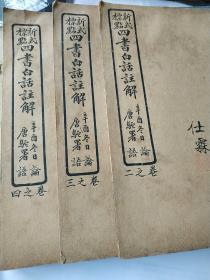 仕霖
新式標點
四書白話註解
辛酉冬日
唐駝署
論語
卷之二
新式標點
四書白話註解
辛酉冬日
唐駝署
論語
卷之三
新式標點
四書白話註解
辛酉冬日
唐駝署
論語
卷之四